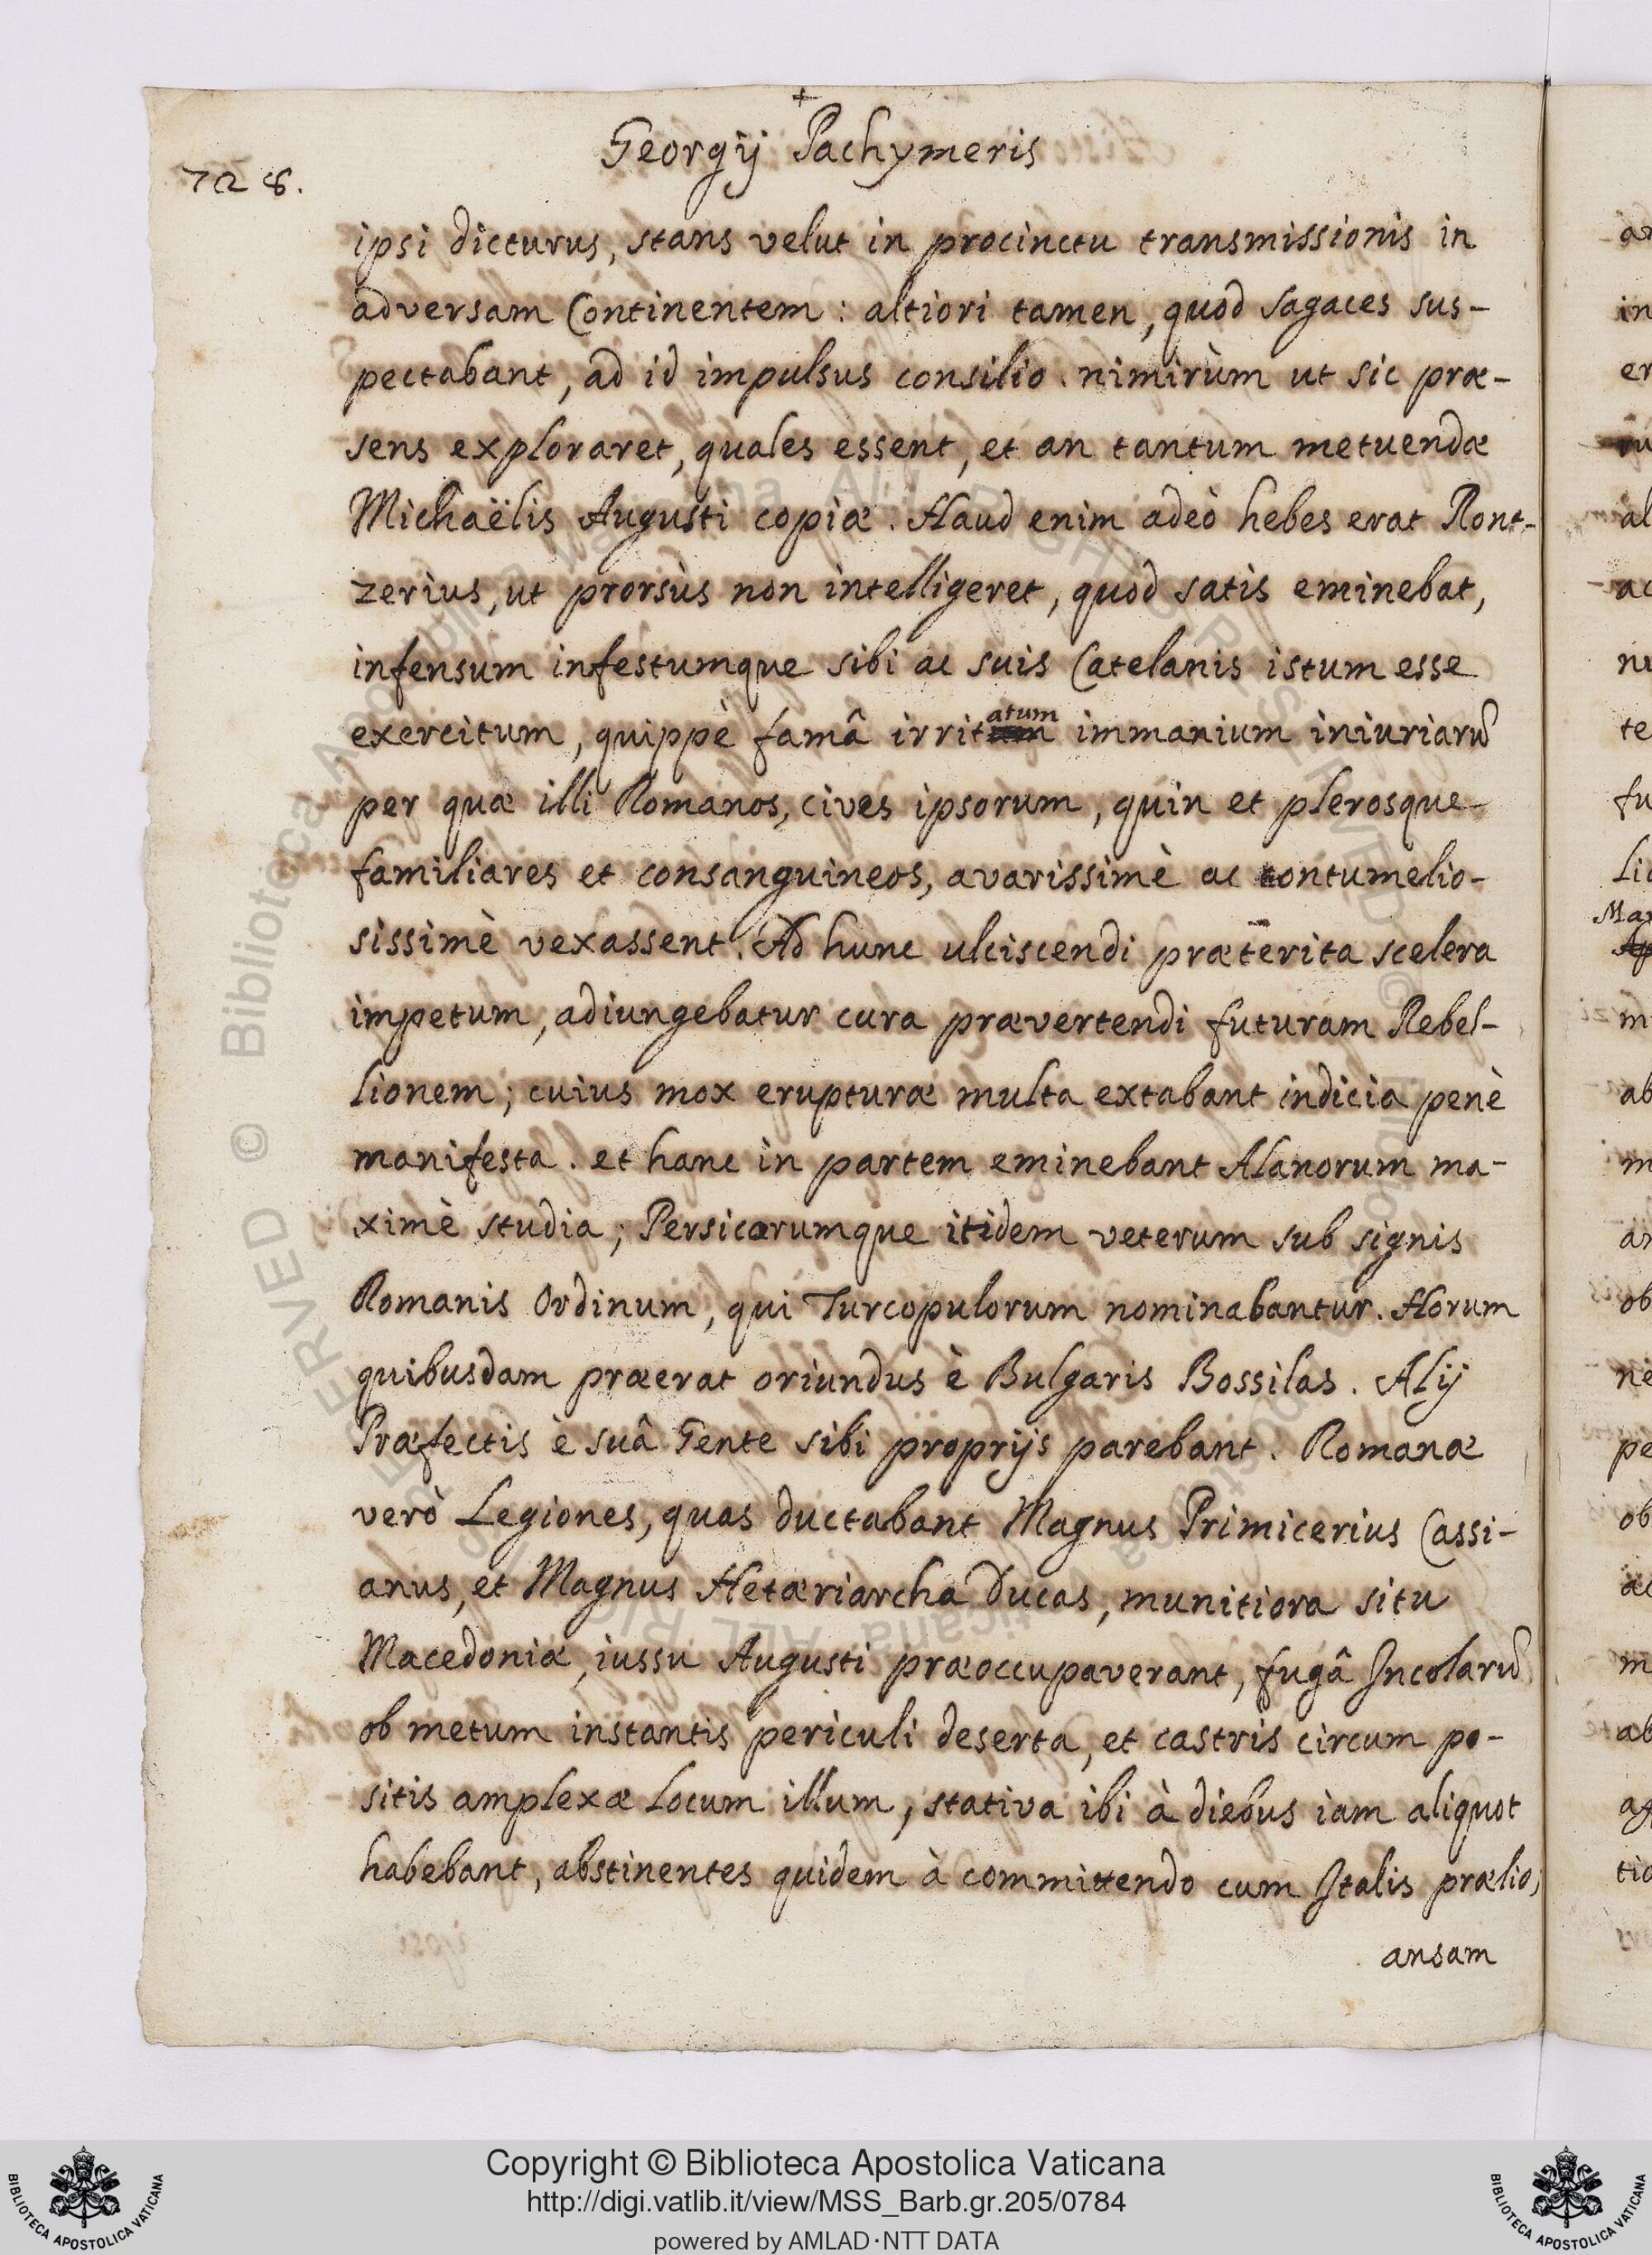 +
Georgij Pachymeris
728.
ipsi dicturus, stans velut in procinctu transmissionis in
adversam Continentem : altiori tamen, quod sagaces sus-
pectabant, ad id impulsus consilio. nimirùm ut sic præ-
sens exploraret, quales essent, et an tantum metuendæ
Michaëlis Augusti copiæ. Haud enim adeò hebes erat Ront-
zerius, ut prorsùs non intelligeret, quod satis eminebat,
infensum infestumque sibi ac suis Catelanis istum esse
exercitum, quippè famâ irritatum immanium iniuriarũ
per quæ illi Romanos, cives ipsorum, quin et plerosque
familiares et consanguineos, avarissimè ac contumelio-
sissimè vexassent. Ad hunc ulciscendi præterita scelera
impetum, adiungebatur cura prævertendi futuram Rebel-
lionem; cuius mox erupturæ multa extabant indicia penè
manifesta. et hanc in partem eminebant Alanorum ma-
ximè studia; Persicorumque itidem veterum sub signis
Romanis Ordinum, qui Turcopulorum nominabantur. Horum
quibusdam præerat oriundus è Bulgaris Bossilas. Alij
Præfectis è suâ Gente sibi proprijs parebant. Romanæ
verò Legiones, quas ductabant Magnus Primicerius Cassi-
anus, et Magnus Hetæriarcha Ducas, munitiora situ
Macedoniæ, iussu Augusti præoccupaverant, fugâ Incolarũ
ob metum instantis periculi deserta, et castris circum po-
sitis amplexæ locum illum, stativa ibi à diebus iam aliquot
habebant, abstinentes quidem à committendo cum Italis prælio;
ansam
Copyright © Biblioteca Apostolica Vaticana
http://digi.vatlib.it/view/MSS_Barb.gr.205/0784
powered by AMLAD·NTT DATA
BIBLIOTECA APOSTOLICA VATICANA
BIBLIOTECA APOSTOLICA VATICANA